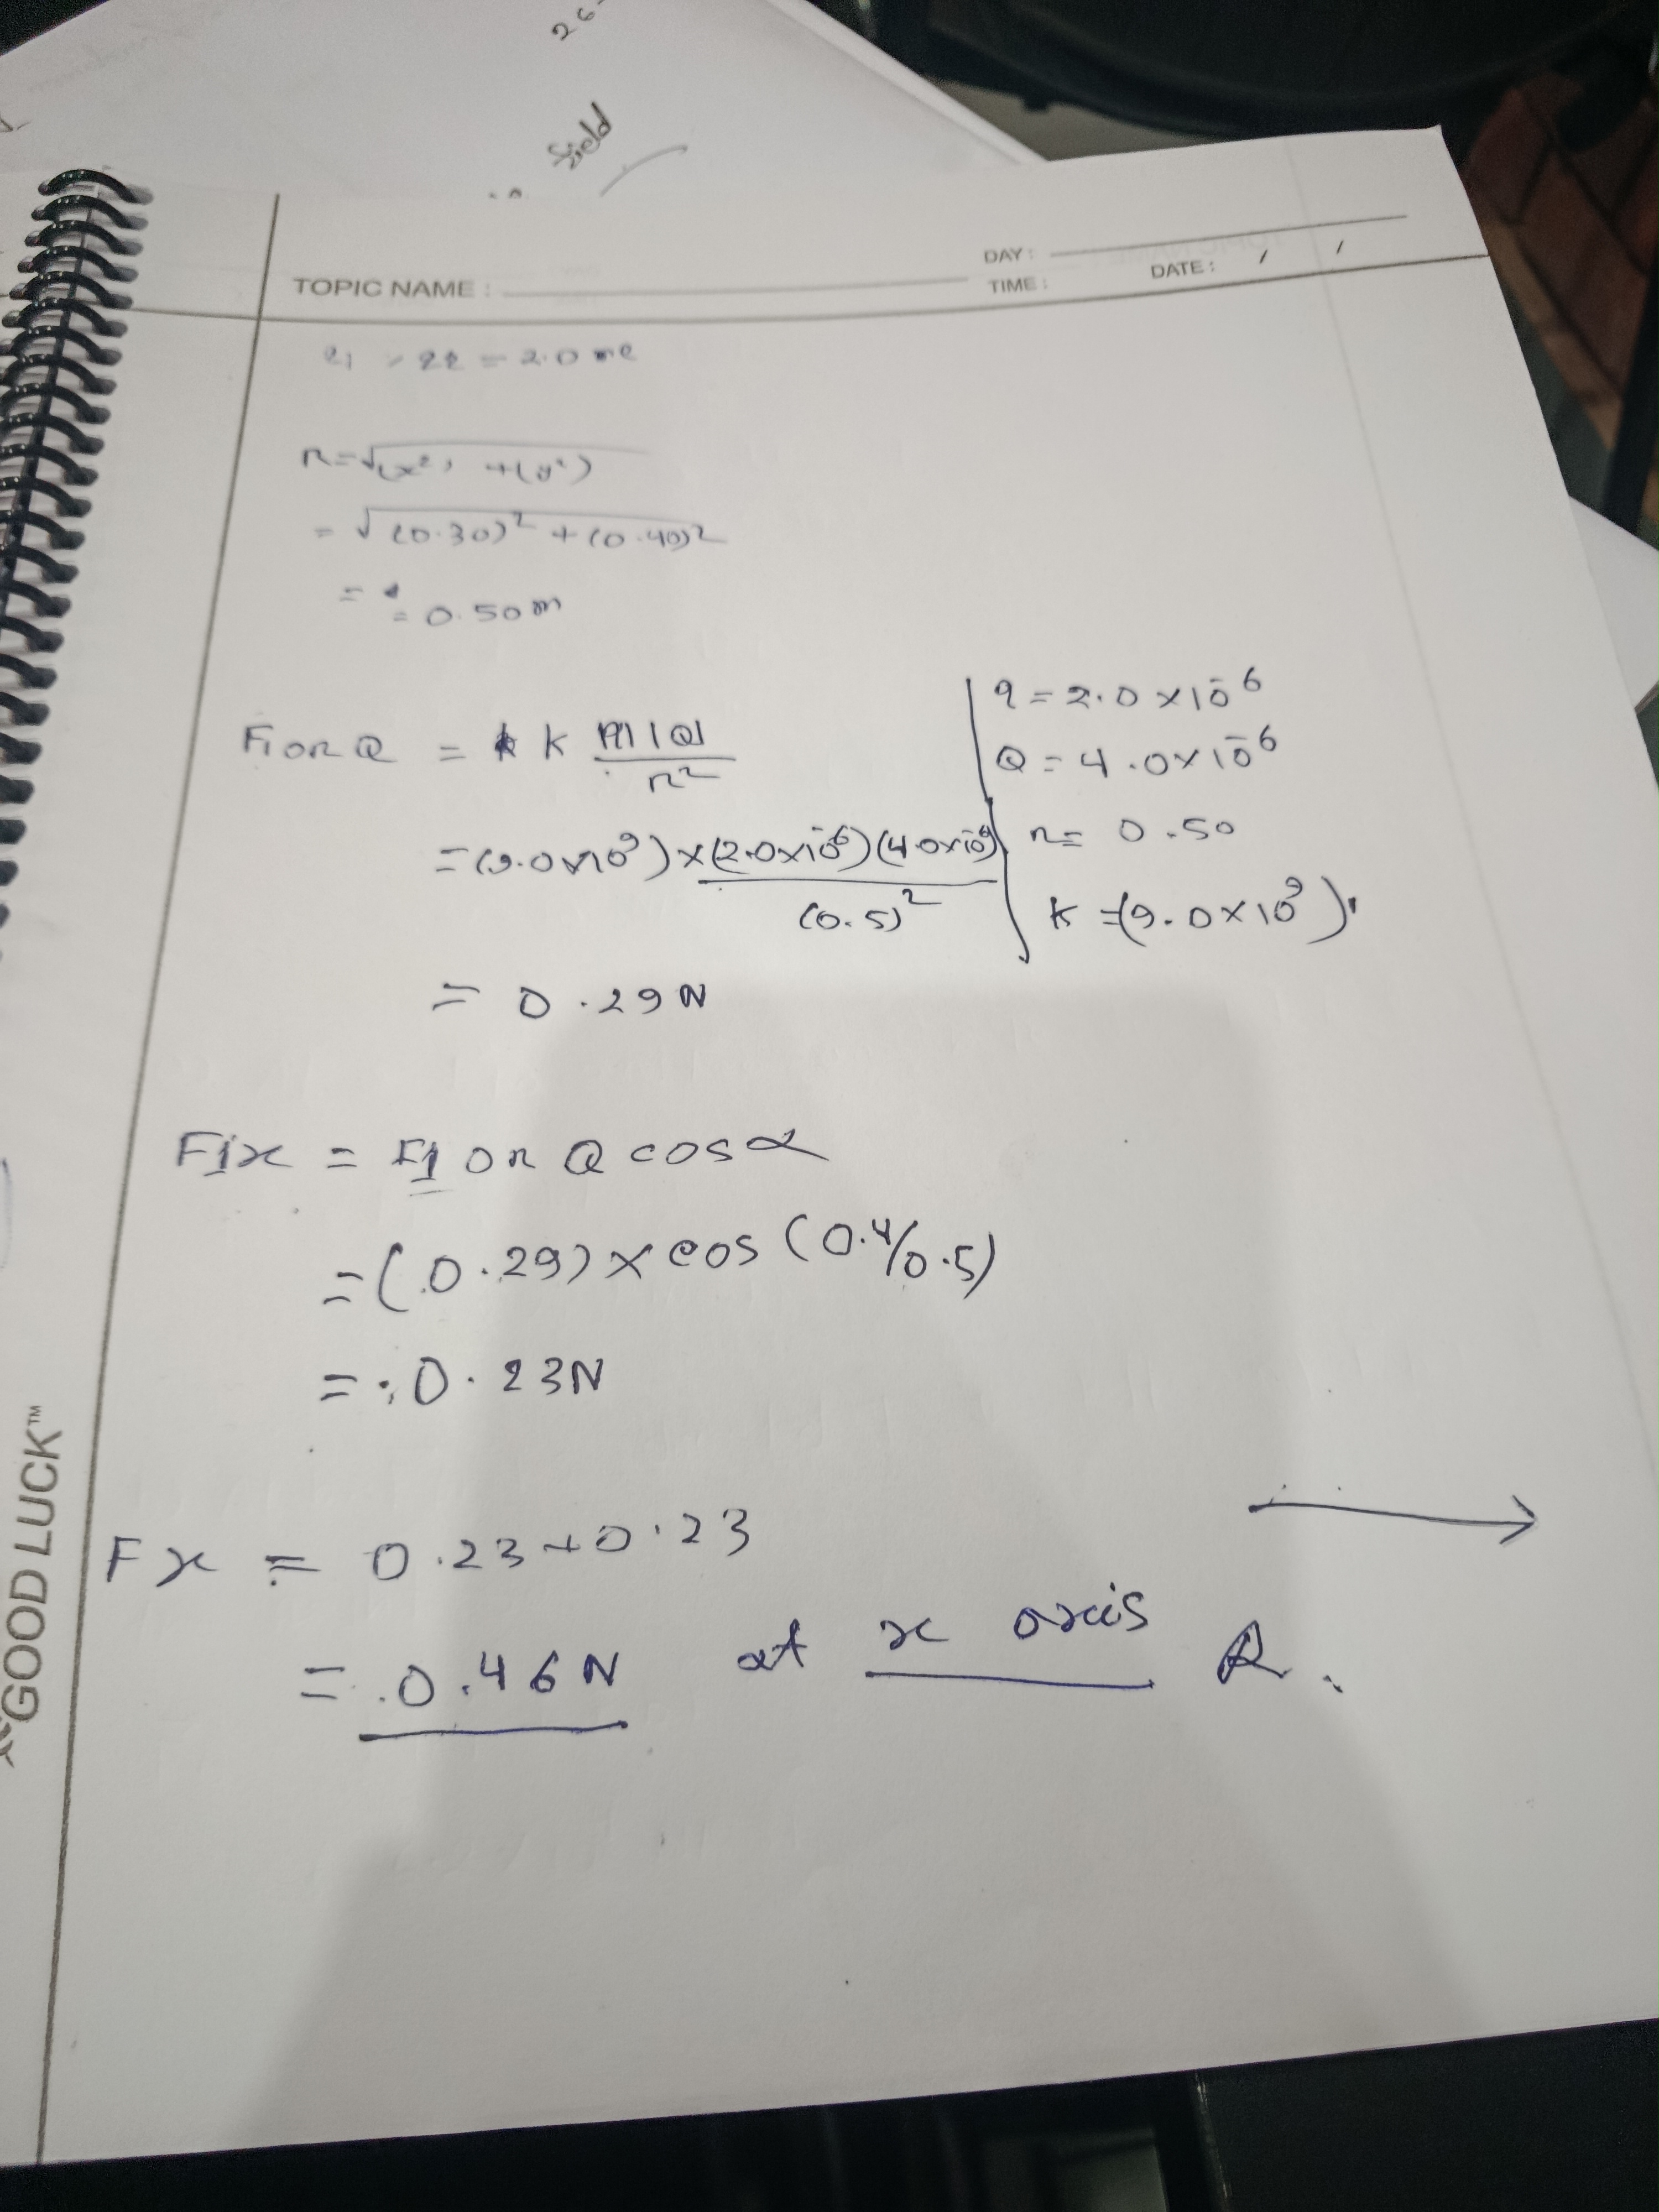 26-
field
DAY:
TOPIC NAME:
TIME:
DATE: / /
= 2.0
r = √(x²) + (y²)
= √(0.30)² + (0.40)²
=
= 0.50 m
F1 on Q = k |q| |Q| / r²
q = 2.0 × 10⁻⁶
Q = 4.0 × 10⁻⁶
= (9.0×10⁹) × (2.0×10⁻⁶)(4.0×10⁻⁶) / (0.5)²
r = 0.50
k = (9.0 × 10⁹)
= 0.29 N
F1x = F1 on Q cos α
= (0.29) × cos (0.4/0.5)
= 0.23 N
Fx = 0.23 + 0.23
= 0.46 N at x axis
GOOD LUCK™